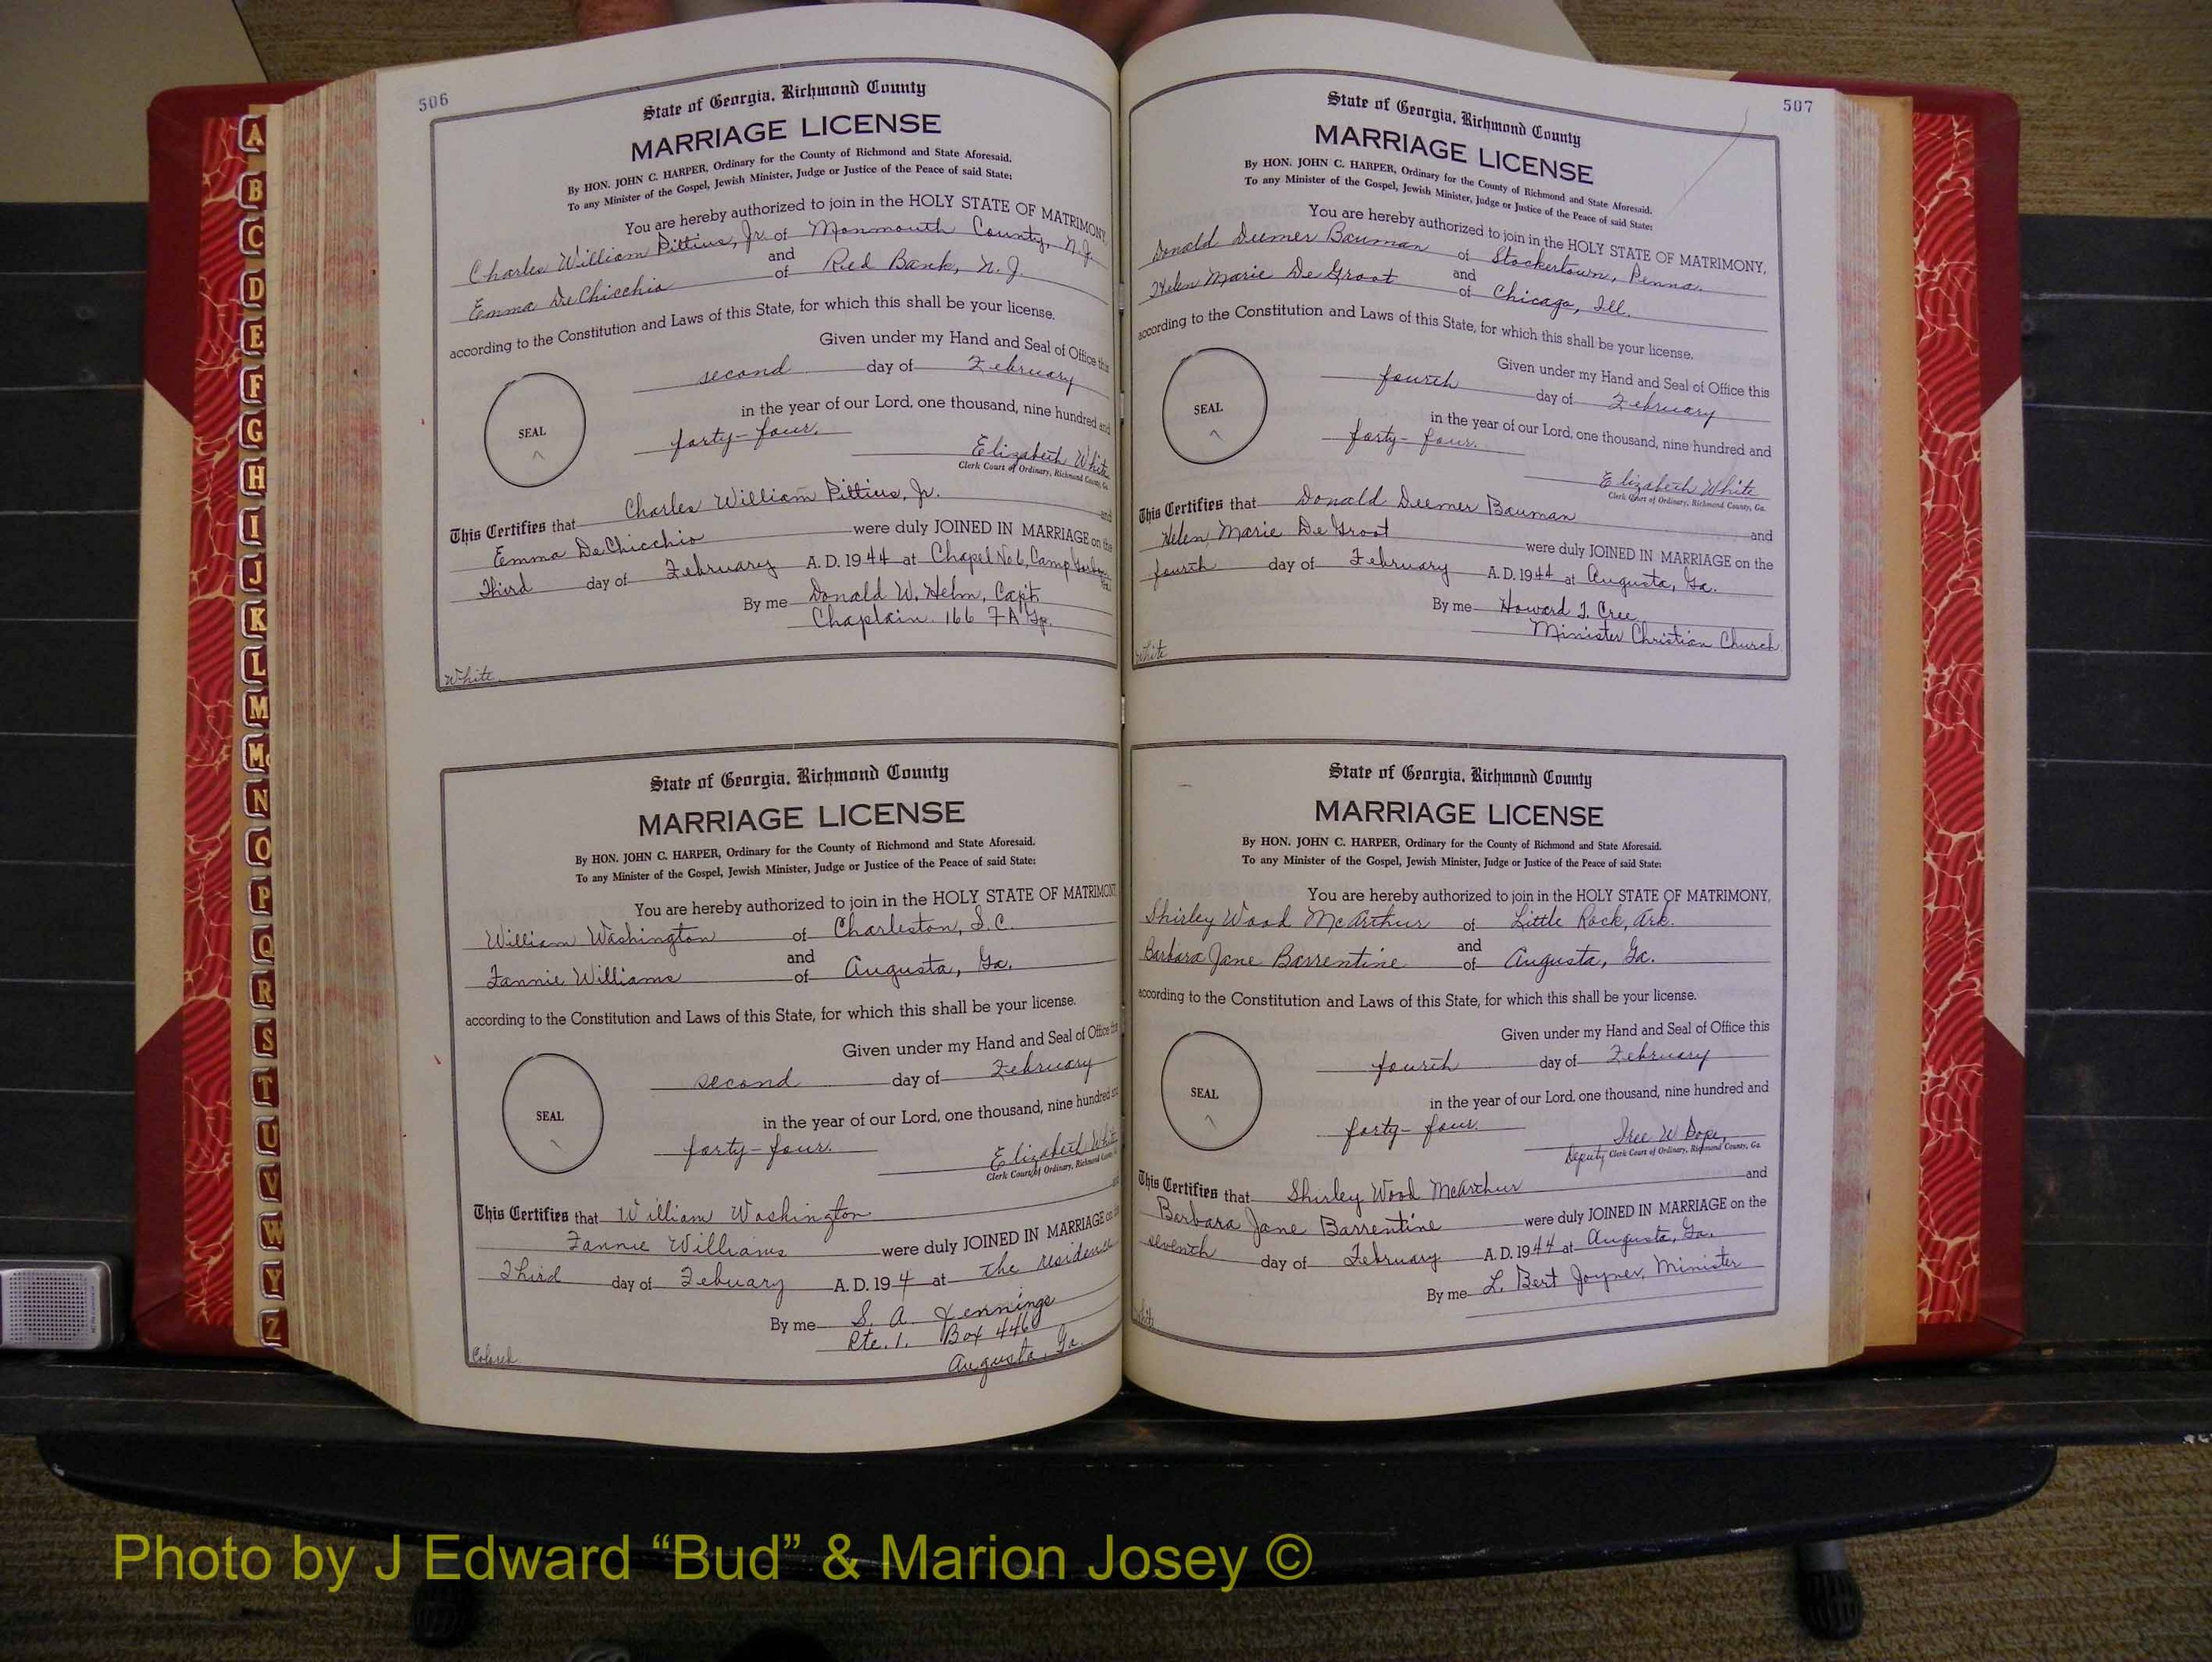 506
State of Georgia, Richmond County
MARRIAGE LICENSE
By HON. JOHN C. HARPER, Ordinary for the County of Richmond and State Aforesaid.
To any Minister of the Gospel, Jewish Minister, Judge or Justice of the Peace of said State:
You are hereby authorized to join in the HOLY STATE OF MATRIMONY,
Charles William Pittius, Jr. of Monmouth County, N.J.
and
Emma DeChicchio of Red Bank, N.J.
according to the Constitution and Laws of this State, for which this shall be your license.
Given under my Hand and Seal of Office this
second day of February
in the year of our Lord, one thousand, nine hundred and
SEAL
forty-four.
Elizabeth White
Clerk Court of Ordinary, Richmond County, Ga.
This Certifies that Charles William Pittius, Jr. and
Emma DeChicchio were duly JOINED IN MARRIAGE on the
Third day of February A. D. 1944 at Chapel No 6, Camp
By me Donald W. Helm, Capt.
Chaplain. 166 F A Gp.
White
State of Georgia, Richmond County
MARRIAGE LICENSE
By HON. JOHN C. HARPER, Ordinary for the County of Richmond and State Aforesaid.
To any Minister of the Gospel, Jewish Minister, Judge or Justice of the Peace of said State:
You are hereby authorized to join in the HOLY STATE OF MATRIMONY
William Washington of Charleston, S.C.
and
Fannie Williams of Augusta, Ga.
according to the Constitution and Laws of this State, for which this shall be your license.
Given under my Hand and Seal of Office this
second day of February
in the year of our Lord, one thousand, nine hundred and
SEAL
forty-four.
Elizabeth White
Clerk Court of Ordinary, Richmond County
This Certifies that William Washington
Fannie Williams were duly JOINED IN MARRIAGE on
Third day of Febuary A. D. 194 at the residence
By me S. A. Jennings
Rte. 1. Box 446
Augusta, Ga.
Colored
507
State of Georgia, Richmond County
MARRIAGE LICENSE
By HON. JOHN C. HARPER, Ordinary for the County of Richmond and State Aforesaid.
To any Minister of the Gospel, Jewish Minister, Judge or Justice of the Peace of said State:
You are hereby authorized to join in the HOLY STATE OF MATRIMONY,
Donald Deemer Bauman of Stockertown, Penna.
and
Helen Marie De Groot of Chicago, Ill.
according to the Constitution and Laws of this State, for which this shall be your license.
Given under my Hand and Seal of Office this
fourth day of February
in the year of our Lord, one thousand, nine hundred and
SEAL
forty-four.
Elizabeth White
Clerk Court of Ordinary, Richmond County, Ga.
This Certifies that Donald Deemer Bauman and
Helen Marie De Groot were duly JOINED IN MARRIAGE on the
fourth day of February A. D. 1944 at Augusta, Ga.
By me Howard T. Cree
Minister Christian Church
White
State of Georgia, Richmond County
MARRIAGE LICENSE
By HON. JOHN C. HARPER, Ordinary for the County of Richmond and State Aforesaid.
To any Minister of the Gospel, Jewish Minister, Judge or Justice of the Peace of said State:
You are hereby authorized to join in the HOLY STATE OF MATRIMONY,
Shirley Wood McArthur of Little Rock, Ark.
and
Barbara Jane Barrentine of Augusta, Ga.
according to the Constitution and Laws of this State, for which this shall be your license.
Given under my Hand and Seal of Office this
fourth day of February
in the year of our Lord, one thousand, nine hundred and
SEAL
forty-four.
W Pope,
Deputy Clerk Court of Ordinary, Richmond County, Ga.
This Certifies that Shirley Wood McArthur and
Barbara Jane Barrentine were duly JOINED IN MARRIAGE on the
seventh day of February A. D. 1944 at Augusta, Ga.
By me L. Bert Joyner, Minister
White
A
B
C
D
E
F
G
H
I
J
K
L
M
Mc
N
O
P
Q
R
S
T
U
V
W
Y
Z
Photo by J Edward “Bud” & Marion Josey ©